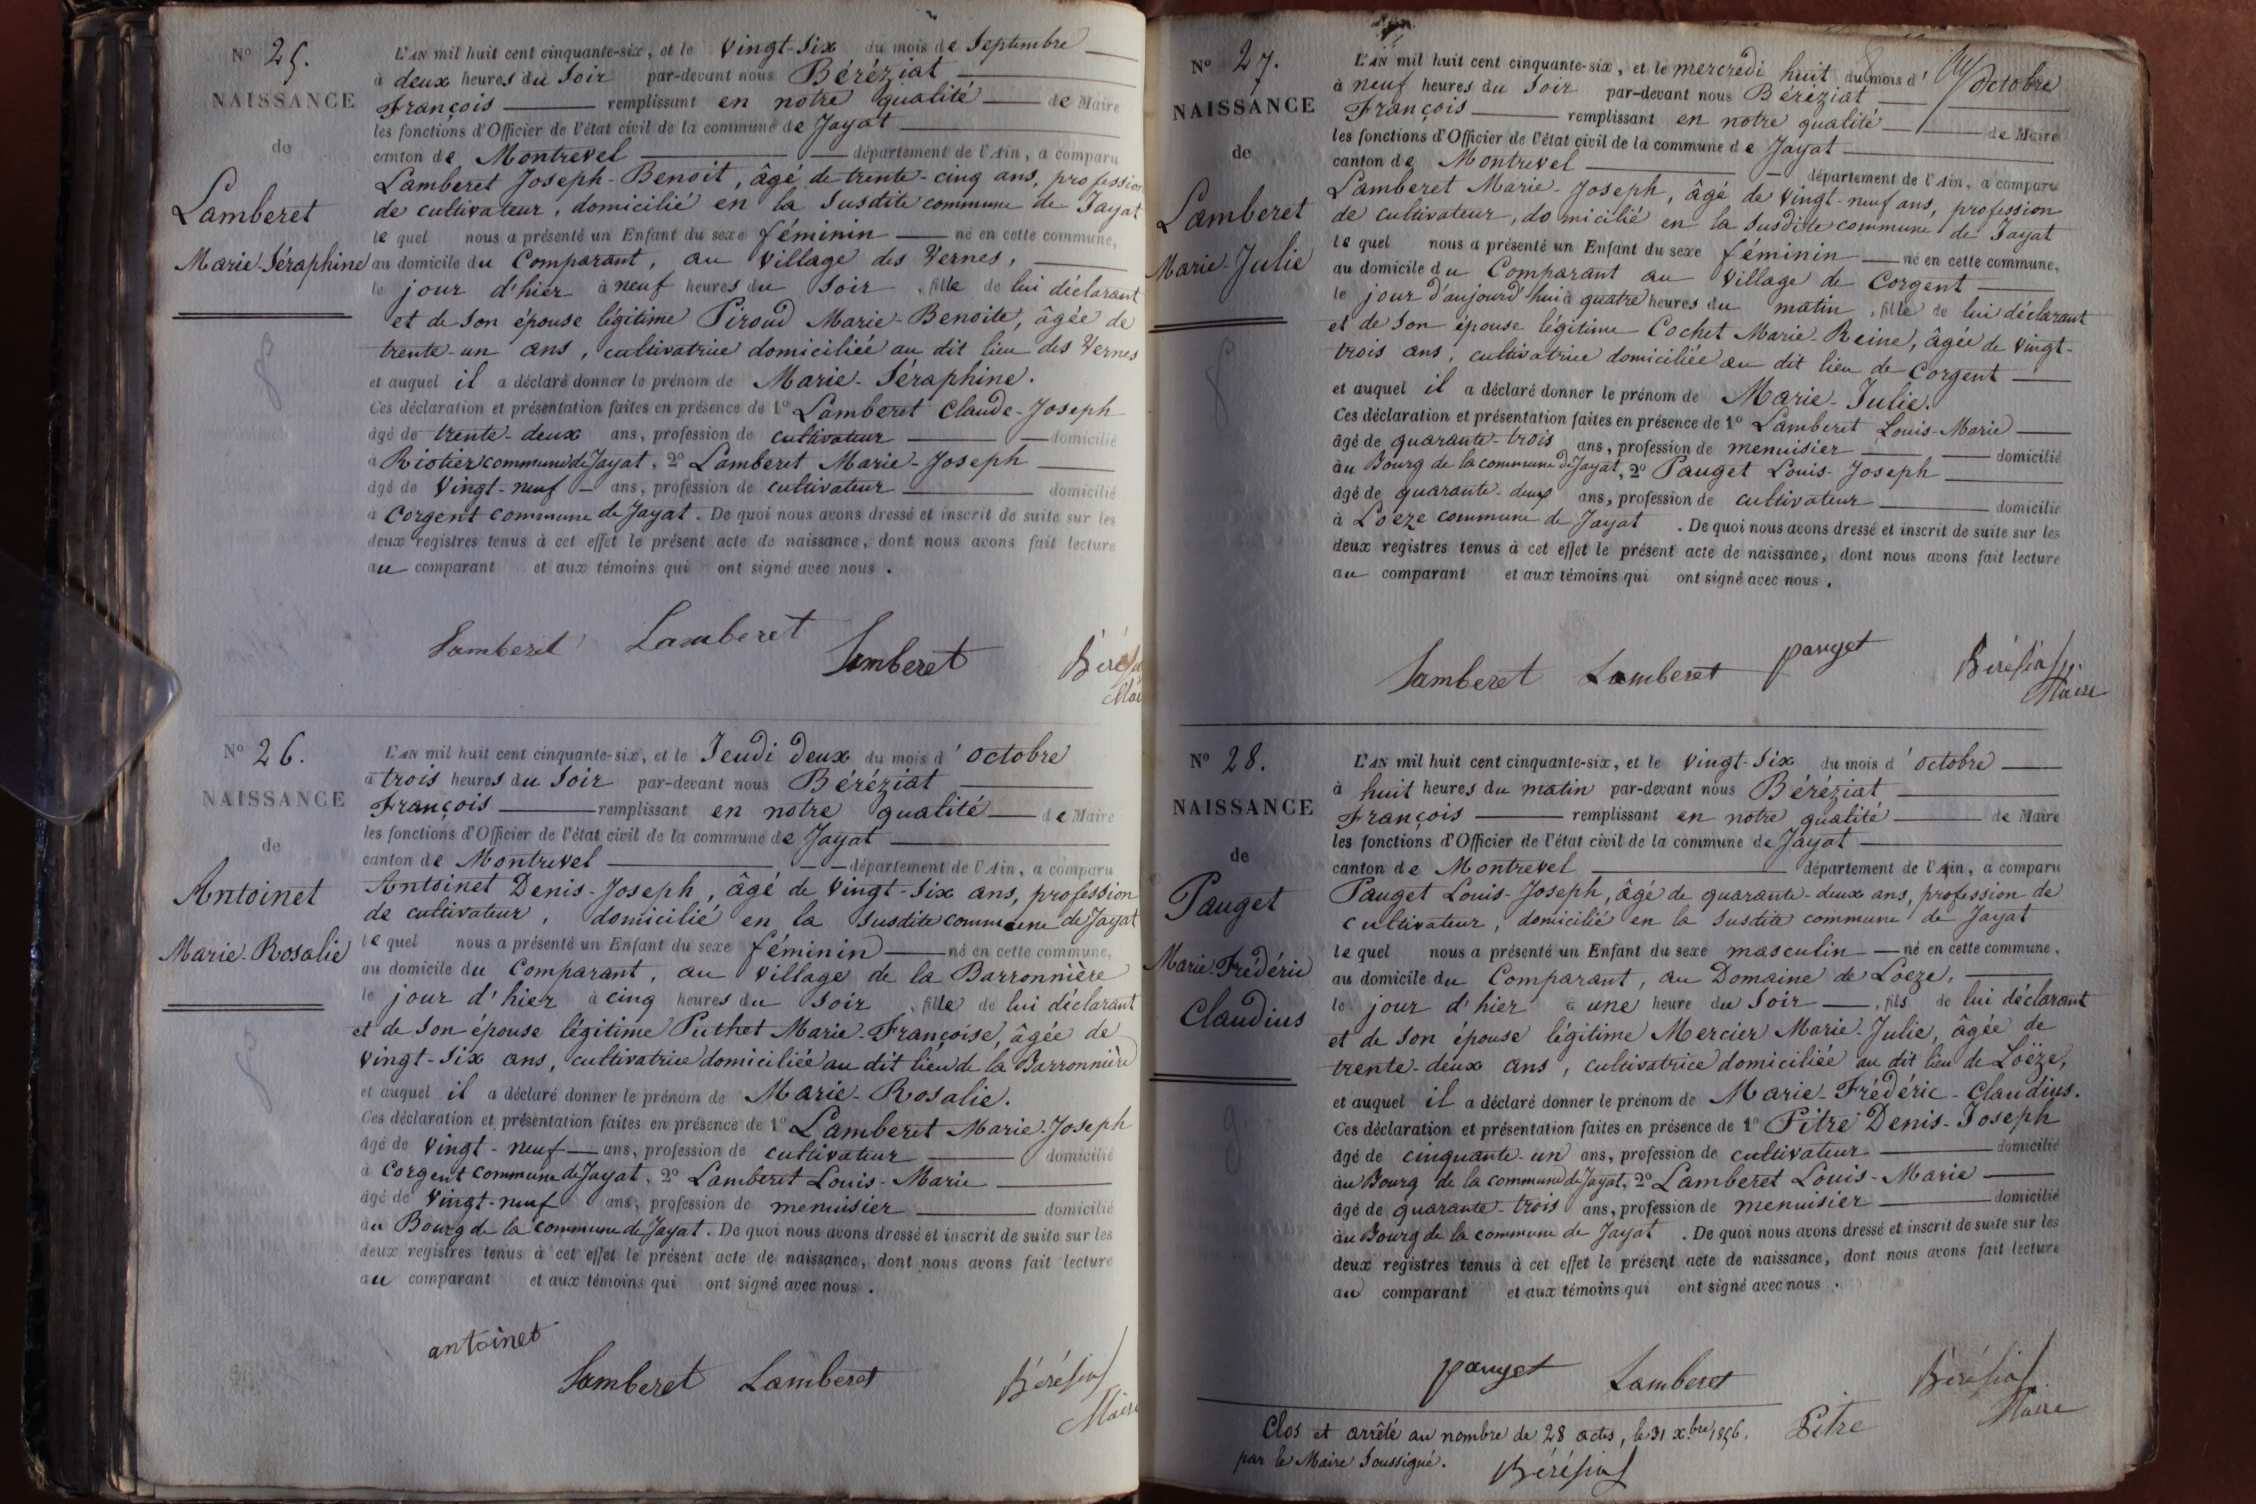 N° 25.
NAISSANCE
de
Lamberet
Marie-Séraphine
L'AN mil huit cent cinquante-six, et le Vingt-six du mois de Septembre
à deux heures du Soir par-devant nous Béréziat
François remplissant en notre qualité de Maire
les fonctions d'Officier de l'état civil de la commune de Jayat
canton de Montrevel département de l'Ain, a comparu
Lamberet Joseph-Benoit, âgé de trente-cinq ans, profession
de cultivateur, domicilié en la susdite commune de Jayat
lequel nous a présenté un Enfant du sexe féminin né en cette commune,
au domicile du Comparant, au Village des Vernes,
le jour d'hier à neuf heures du Soir, fille de lui déclarant
et de son épouse légitime Piroud Marie-Benoite, âgée de
trente-un ans, cultivatrice domiciliée au dit lieu des Vernes
et auquel il a déclaré donner le prénom de Marie-Séraphine.
Ces déclaration et présentation faites en présence de 1° Lamberet Claude-Joseph
âgé de trente-deux ans, profession de cultivateur domicilié
à Riotier commune de Jayat, 2° Lamberet Marie-Joseph
âgé de Vingt-neuf ans, profession de cultivateur domicilié
à Corgent commune de Jayat. De quoi nous avons dressé et inscrit de suite sur les
deux registres tenus à cet effet le présent acte de naissance, dont nous avons fait lecture
au comparant et aux témoins qui ont signé avec nous.
Lamberet Lamberet Lamberet
N° 26.
NAISSANCE
de
Antoinet
Marie-Rosalie
L'AN mil huit cent cinquante-six, et le Jeudi deux du mois d'octobre
à trois heures du Soir par-devant nous Béréziat
François remplissant en notre qualité de Maire
les fonctions d'Officier de l'état civil de la commune de Jayat
canton de Montrevel département de l'Ain, a comparu
Antoinet Denis-Joseph, âgé de Vingt-six ans, profession
de cultivateur, domicilié en la susdite commune de Jayat
lequel nous a présenté un Enfant du sexe féminin né en cette commune,
au domicile du Comparant, au Village de la Barronnière
le jour d'hier à cinq heures du Soir, fille de lui déclarant
et de son épouse légitime Puthet Marie-Françoise, âgée de
Vingt-six ans, cultivatrice domiciliée au dit lieu de la Barronnière
et auquel il a déclaré donner le prénom de Marie-Rosalie.
Ces déclaration et présentation faites en présence de 1° Lamberet Marie-Joseph
âgé de Vingt-neuf ans, profession de cultivateur domicilié
à Corgent commune de Jayat, 2° Lamberet Louis-Marie
âgé de Vingt-neuf ans, profession de menuisier domicilié
au Bourg de la commune de Jayat. De quoi nous avons dressé et inscrit de suite sur les
deux registres tenus à cet effet le présent acte de naissance, dont nous avons fait lecture
au comparant et aux témoins qui ont signé avec nous.
antoinet
Lamberet Lamberet Béréziat
Maire
N° 27.
NAISSANCE
de
Lamberet
Marie-Julie
L'AN mil huit cent cinquante-six, et le mercredi huit du mois d'Octobre
à neuf heures du Soir par-devant nous Béréziat
François remplissant en notre qualité de Maire
les fonctions d'Officier de l'état civil de la commune de Jayat
canton de Montrevel département de l'Ain, a comparu
Lamberet Marie-Joseph, âgé de Vingt-neuf ans, profession
de cultivateur, domicilié en la susdite commune de Jayat
lequel nous a présenté un Enfant du sexe féminin né en cette commune,
au domicile du Comparant au Village de Corgent
le jour d'aujourd'hui à quatre heures du matin, fille de lui déclarant
et de son épouse légitime Cochet Marie-Reine, âgée de Vingt-
trois ans, cultivatrice domiciliée au dit lieu de Corgent
et auquel il a déclaré donner le prénom de Marie-Julie.
Ces déclaration et présentation faites en présence de 1° Lamberet Louis-Marie
âgé de quarante-trois ans, profession de menuisier domicilié
au Bourg de la commune de Jayat, 2° Pauget Louis-Joseph
âgé de quarante-deux ans, profession de cultivateur domicilié
à Loeze commune de Jayat. De quoi nous avons dressé et inscrit de suite sur les
deux registres tenus à cet effet le présent acte de naissance, dont nous avons fait lecture
au comparant et aux témoins qui ont signé avec nous.
Lamberet Lamberet pauget Béréziat
Maire
N° 28.
NAISSANCE
de
Pauget
Marie-Frédéric
Claudius
L'AN mil huit cent cinquante-six, et le Vingt-six du mois d'octobre
à huit heures du matin par-devant nous Béréziat
François remplissant en notre qualité de Maire
les fonctions d'Officier de l'état civil de la commune de Jayat
canton de Montrevel département de l'Ain, a comparu
Pauget Louis-Joseph, âgé de quarante-deux ans, profession de
cultivateur, domicilié en la susdite commune de Jayat
lequel nous a présenté un Enfant du sexe masculin né en cette commune,
au domicile du Comparant, au Domaine de Loeze,
le jour d'hier à une heure du Soir, fils de lui déclarant
et de son épouse légitime Mercier Marie-Julie, âgée de
trente-deux ans, cultivatrice domiciliée au dit lieu de Loëze,
et auquel il a déclaré donner le prénom de Marie-Frédéric-Claudius.
Ces déclaration et présentation faites en présence de 1° Pitre Denis-Joseph
âgé de cinquante-un ans, profession de cultivateur domicilié
au Bourg de la commune de Jayat, 2° Lamberet Louis-Marie
âgé de quarante-trois ans, profession de menuisier domicilié
au Bourg de la commune de Jayat. De quoi nous avons dressé et inscrit de suite sur les
deux registres tenus à cet effet le présent acte de naissance, dont nous avons fait lecture
au comparant et aux témoins qui ont signé avec nous.
pauget Lamberet Béréziat
Maire
Pitre
Clos et arrêté au nombre de 28 actes, le 31 xbre 1856.
par le Maire Soussigné. Béréziat